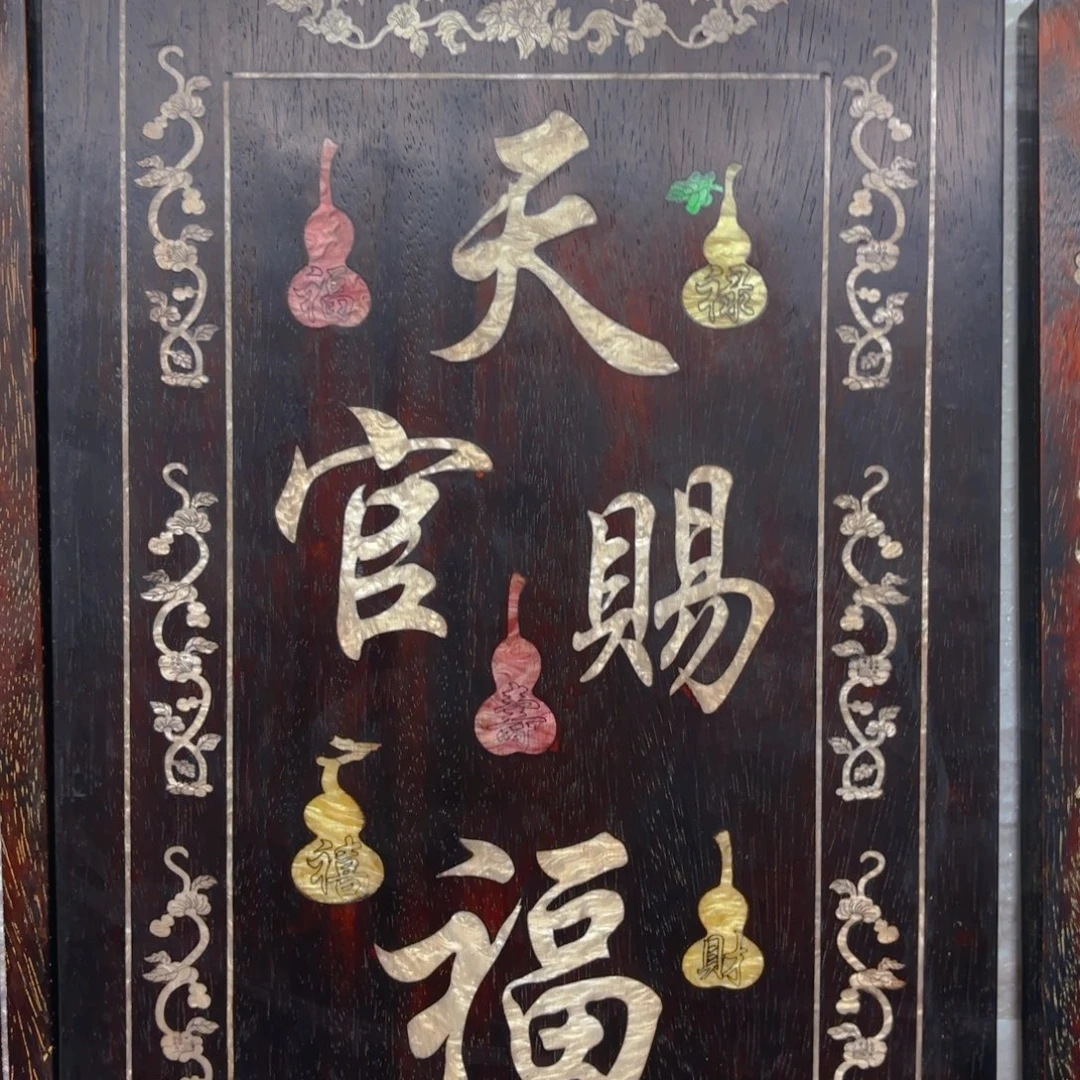 天
福
祿
官
賜
壽
禧
財
福